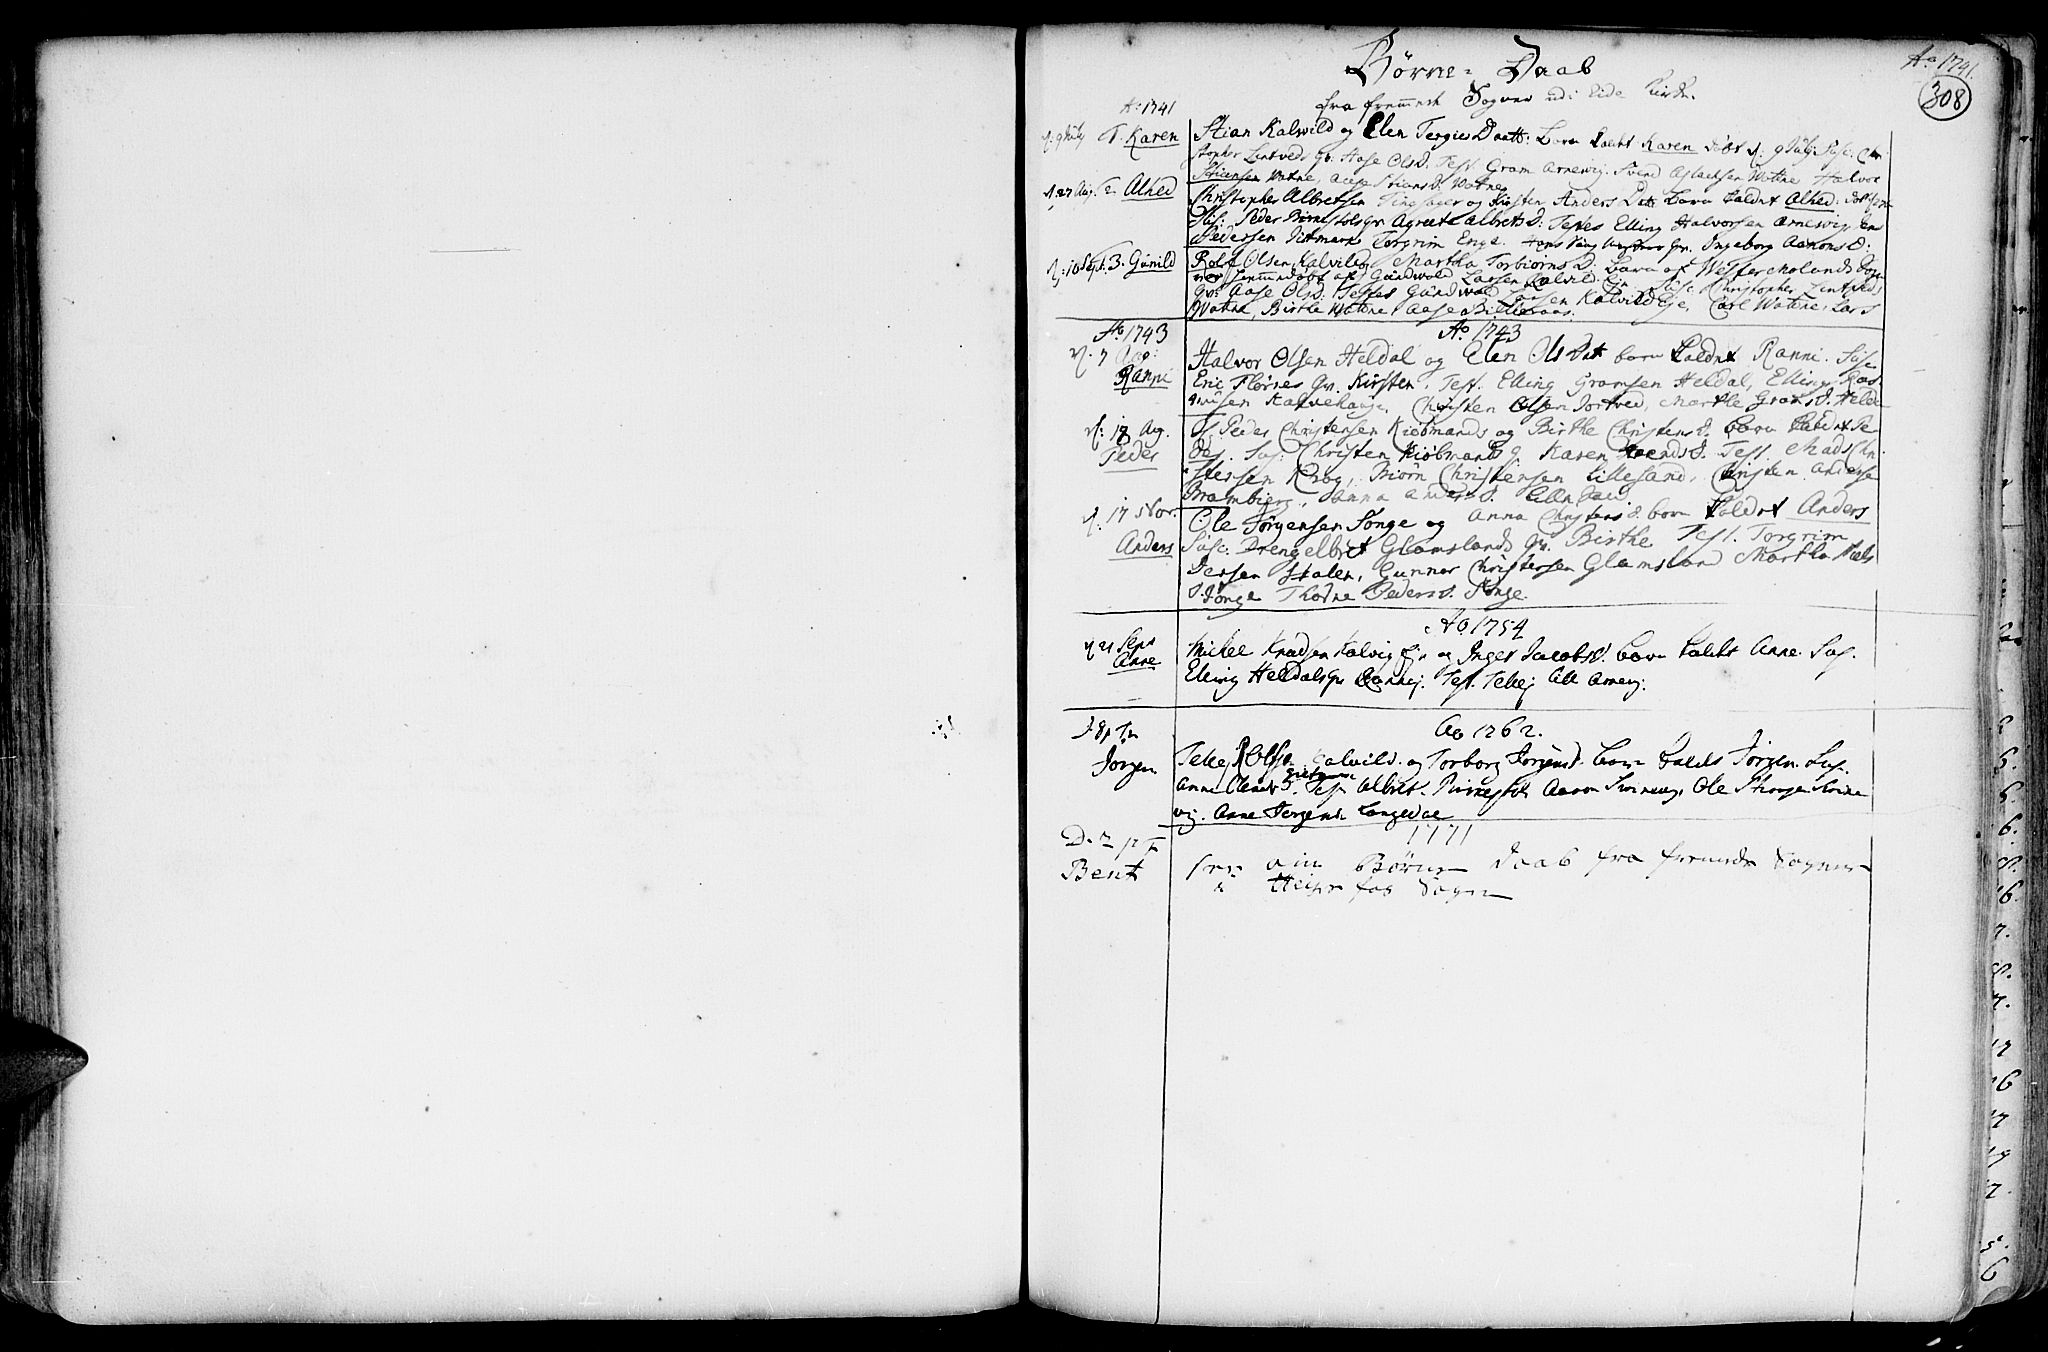 Børne- Daab
Ao 1741.
308
fra fremmede Sogner udi Eide Kirke.
Ao 1741
d. 9 July 1. Karen
Stian Kalwild og Elen Tergies Daatt: Barn kaldt Karen døbt d: 9 July. Susc: Chri
stopher Lintveds qv: Aase Olsd. Test. Gram Arnevig. Svend Aslachsen Watne Halvor
Stiansen Watne, Aase Stiansd. Watne
d. 27 Aug. 2. Alhed
Christopher Albretsen Tingsager og Kirsten Anders Datt: Barn kaldet Alhed.
Sus: Peder Birkestols qv. Agreete Albrets D: Testes Elling Halvorsen Arnevig, Jens
Pedersen Ditmars Torgrim Enge. Ingeborg Aanons D:
d. 10 Sept. 3. Gunild
Rolf Olsen Kalvild og Martha Torbiørns D: Barn af Westermolands Sogn
af Gundwold Larsen Kalvild Eje Susc Christopher Lintveds
qv: Aase Olsd: Testes Gundwold Larsen Kalvild Eje, Carl Watne, Lars
Watne, Birthe Watne Aase
Ao 1743
Ao 1743
d. 7 Aug:
Ranni
Halvor Olsen Heldal og Elen Ols Dat barn kaldet Ranni. Susc
Eric Flørnes qv. Kirsten. Test. Elling Gramsen Heldal, Elling Ras
musen Kalvehauge, Christen Olsen Tortved, Marthe Grams d. Helda
d: 18 Aug.
Peder
S. Peder Christensen Kiøbmands og Birthe Christens d. barn kaldet Pe
der. Sus: Christen Kiøbmands q. Karen d. Test. Mads Chri
stensen Krog, Biørn Christensen Lillesand, Christen Anderse
Brambierg, Anna Anders d.
d. 17 Nov.
Anders
Ole Jørgensen Songe og Anna Christens d. barn kaldet Anders
Susc: Drengelbret Glamslands qv. Birthe Test. Torgrim
Persen Skalen, Gunner Christensen Glamsland Martha Niels
d. Songe Thorne Peders d. Songe.
Ao 1754
d 21 Sept
Anne
Michel Knudsen Kalvig Eje og Inger Jacobsd. barn kaldt Anne. Sus.
Elling Heldals qv Rannej. Test. Tellej
Ao 1762.
Jørgen
Tellej Rolfs. Kalvild. og Torborg Jørgensd. barn kaldt Jørgen. Sus.
Anne Test Albret. Birkestol Aanon Ole
vig. Anne Jørgensd. Langedae
1771
Bent
Børne Daab fra fremede Sogner
Sogn